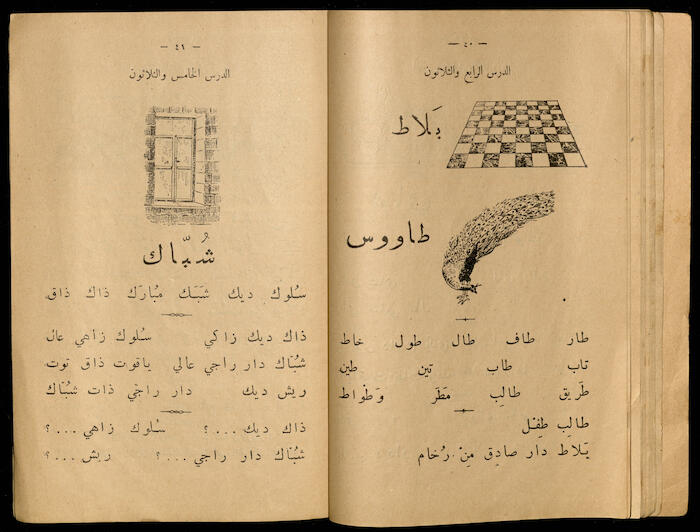 — ٤٠ —
الدرس الرابع والثلاثون
بَلاط
طاووس
طار طاف طال طول خاط
تاب طاب تين طين
طَريق طالِب مَطَرَ وَطْواط
طالِب طِفْل
بَلاط دار صادِق مِنْ رُخام
— ٤١ —
الدرس الخامس والثلاثون
شُبّاك
سُلوك ديك شَبَك مُبارَك ذاك ذاق
ذاك ديك زاكي سلوك زاهي عال
شُبّاك دار راجي عالي ياقوت ذاق توت
ريش ديك دار راجي ذات شُبّاك
ذاك ديك ...؟ سلوك زاهي ...؟
شُبّاك دار راجي ...؟ ريش ...؟